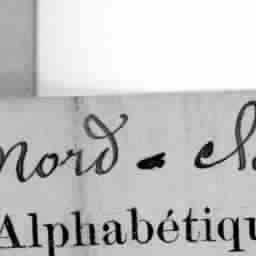 Nord - el
Alphabétiqu